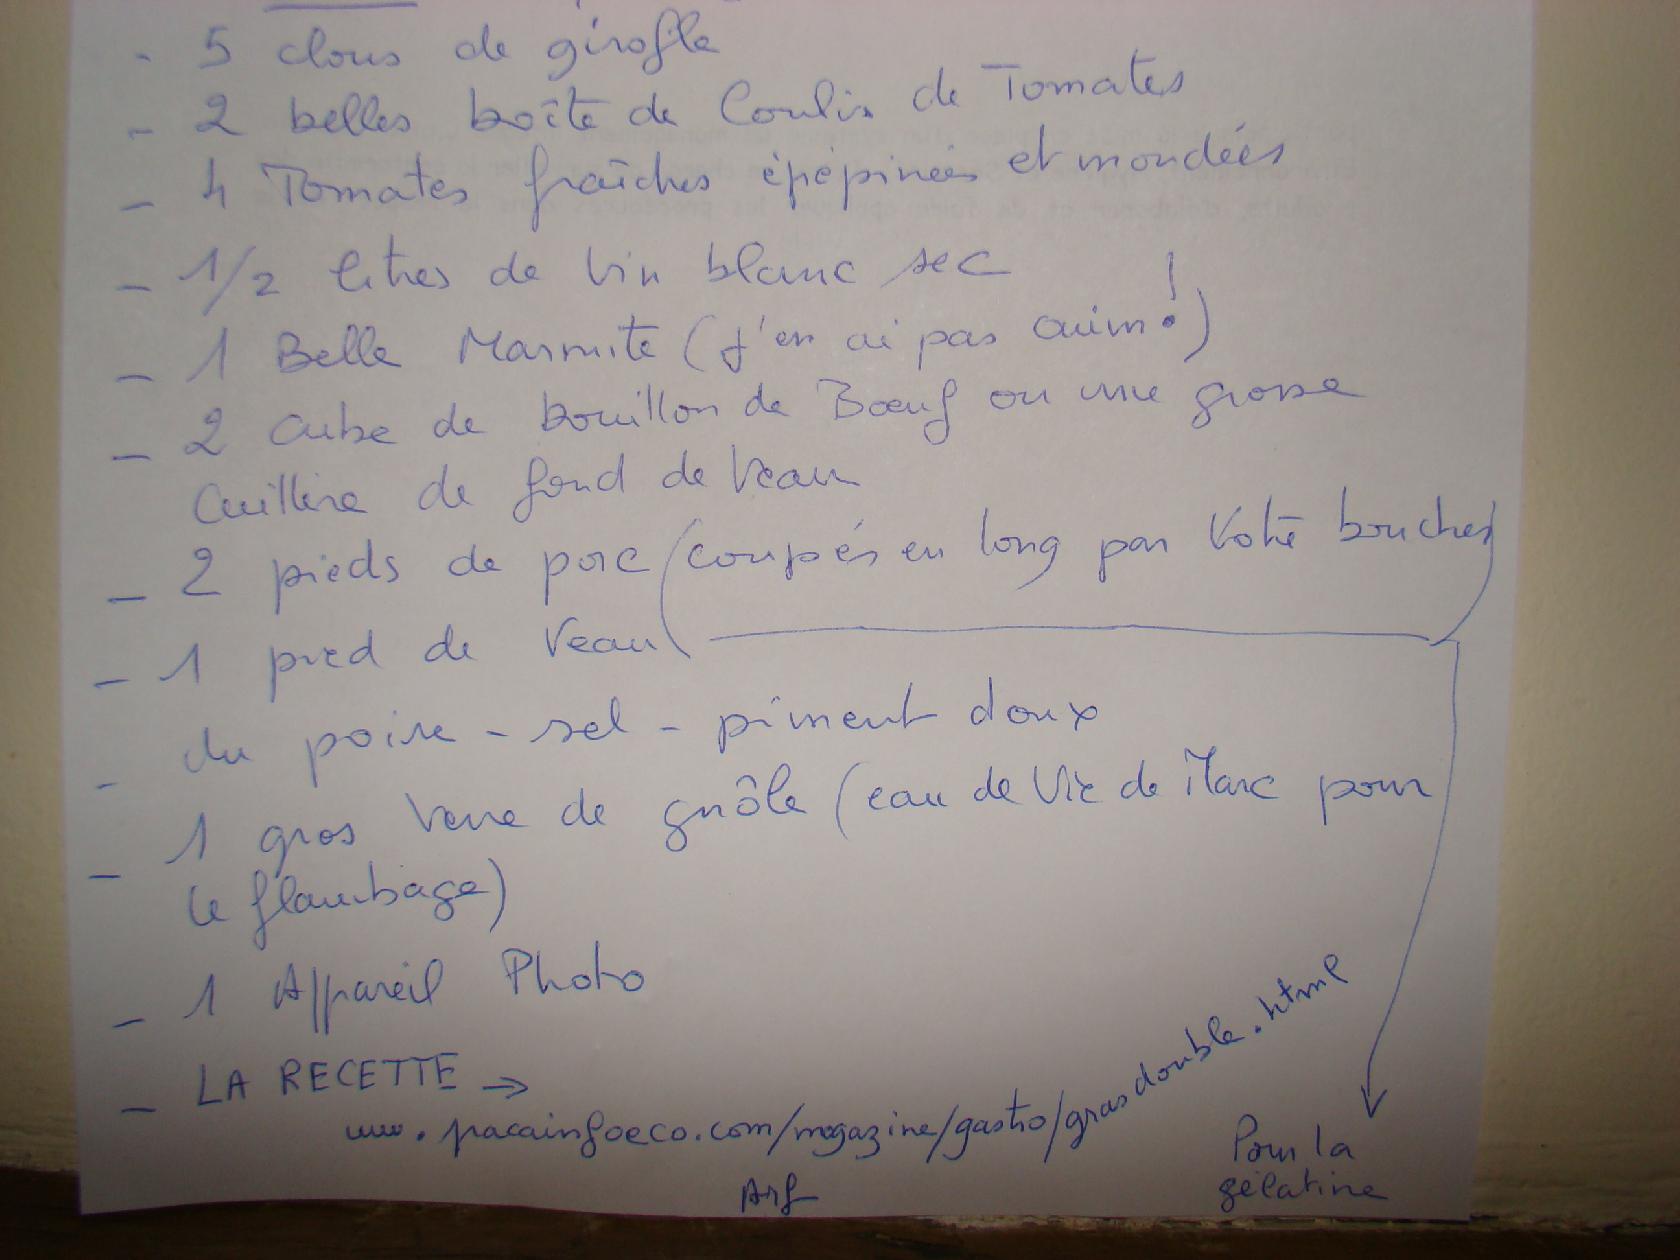 - 5 clous de girofle
- 2 belles boîte de Coulis de Tomates
- 4 Tomates fraîches épépinées et mondées
- 1/2 litres de Vin blanc sec
- 1 Belle Marmite (j'en ai pas auim!)
- 2 cube de bouillon de Bœuf ou une grosse
Cuillère de fond de Veau
- 2 pieds de porc (coupés en long par Votre boucher)
- 1 pied de Veau
- du poivre - sel - piment doux
- 1 gros Verre de gnôle (eau de Vie de Marc pour
le flambage)
- 1 Appareil Photo
- LA RECETTE →
www.pacainfoeco.com/magazine/gastro/grasdouble.html
Pour la
gélatine
Arf